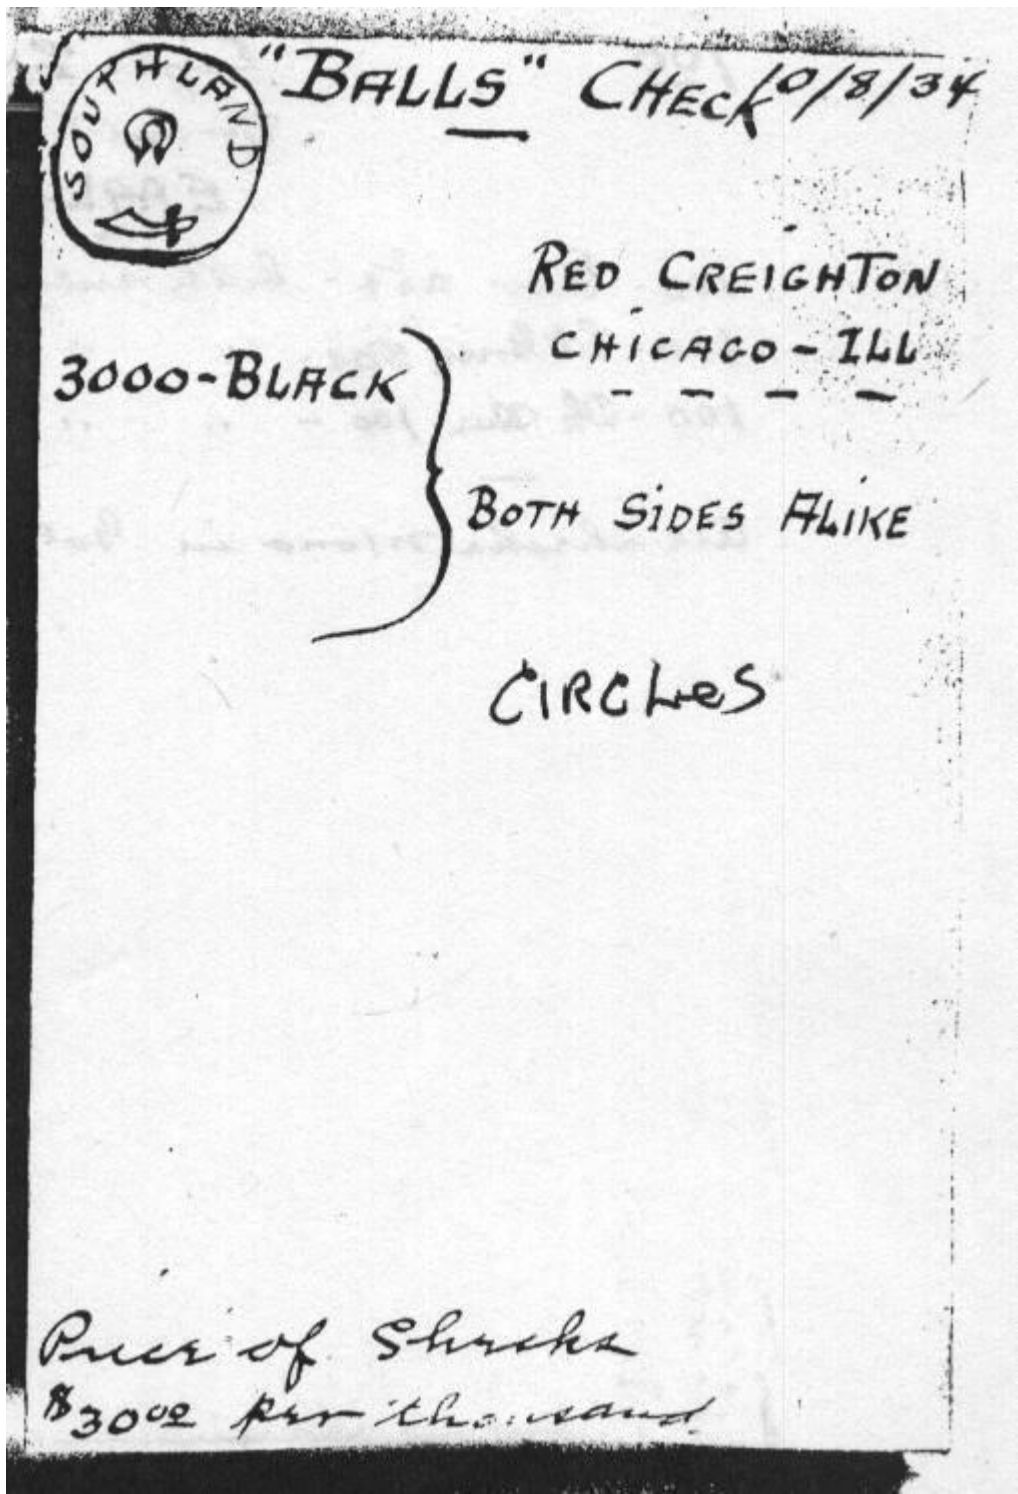 SOUTHLAND
"BALLS" CHECK 10/8/34
RED CREIGHTON
CHICAGO - ILL
3000 - BLACK
BOTH SIDES ALIKE
CIRCLeS
Price of
$30.00 per thousand